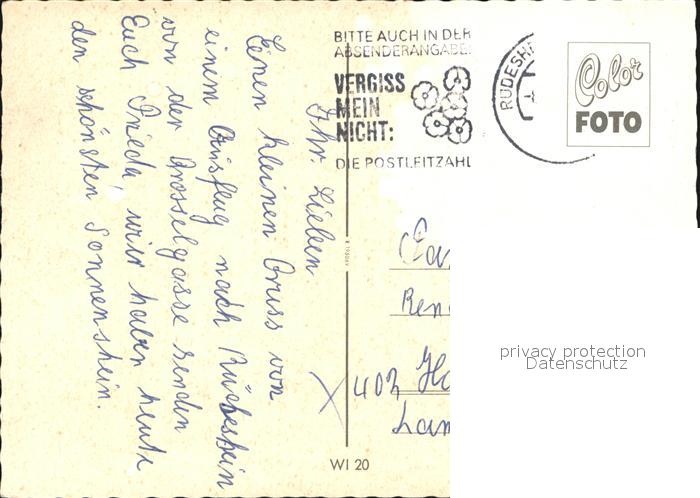 BITTE AUCH IN DER
ABSENDERANGABE:
VERGISS
MEIN
NICHT:
DIE POSTLEITZAHL
RÜDESHE
Color
FOTO
Ihr Lieben
Einen kleinen Gruss von
einem Ausflug nach Rüdesheim
von der Drosselgasse senden
Euch Frieda, wir haben heute
den schönsten Sonnenschein.
Ren
402 
WI 20
privacy protection
Datenschutz